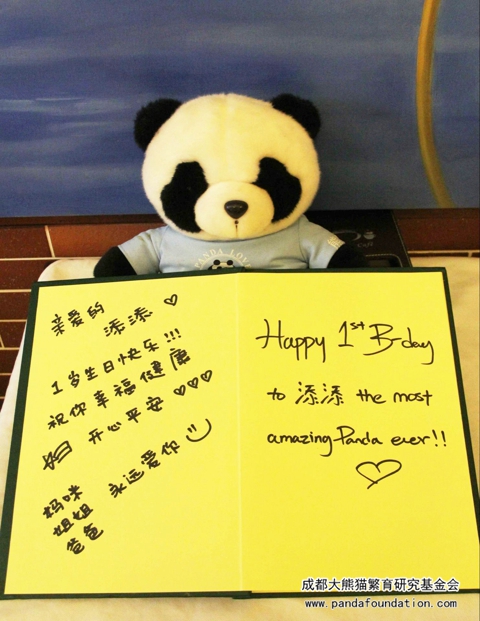 PANDA LOVE
亲爱的
添添 ♡
1岁生日快乐!!!
祝你幸福健康
开心平安 ♡♡♡
永远爱你
妈咪
姐姐
爸爸
Happy 1st B-day
to 添添 the most
amazing Panda ever!!
成都大熊猫繁育研究基金会
www.pandafoundation.com